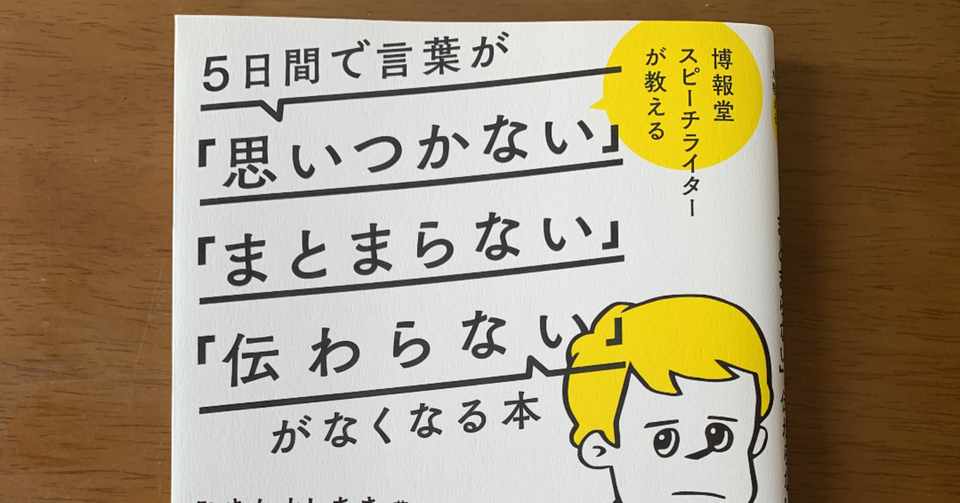 5日間で言葉が
「思いつかない」
「まとまらない」
「伝わらない」
がなくなる本
博報堂
スピーチライター
が教える